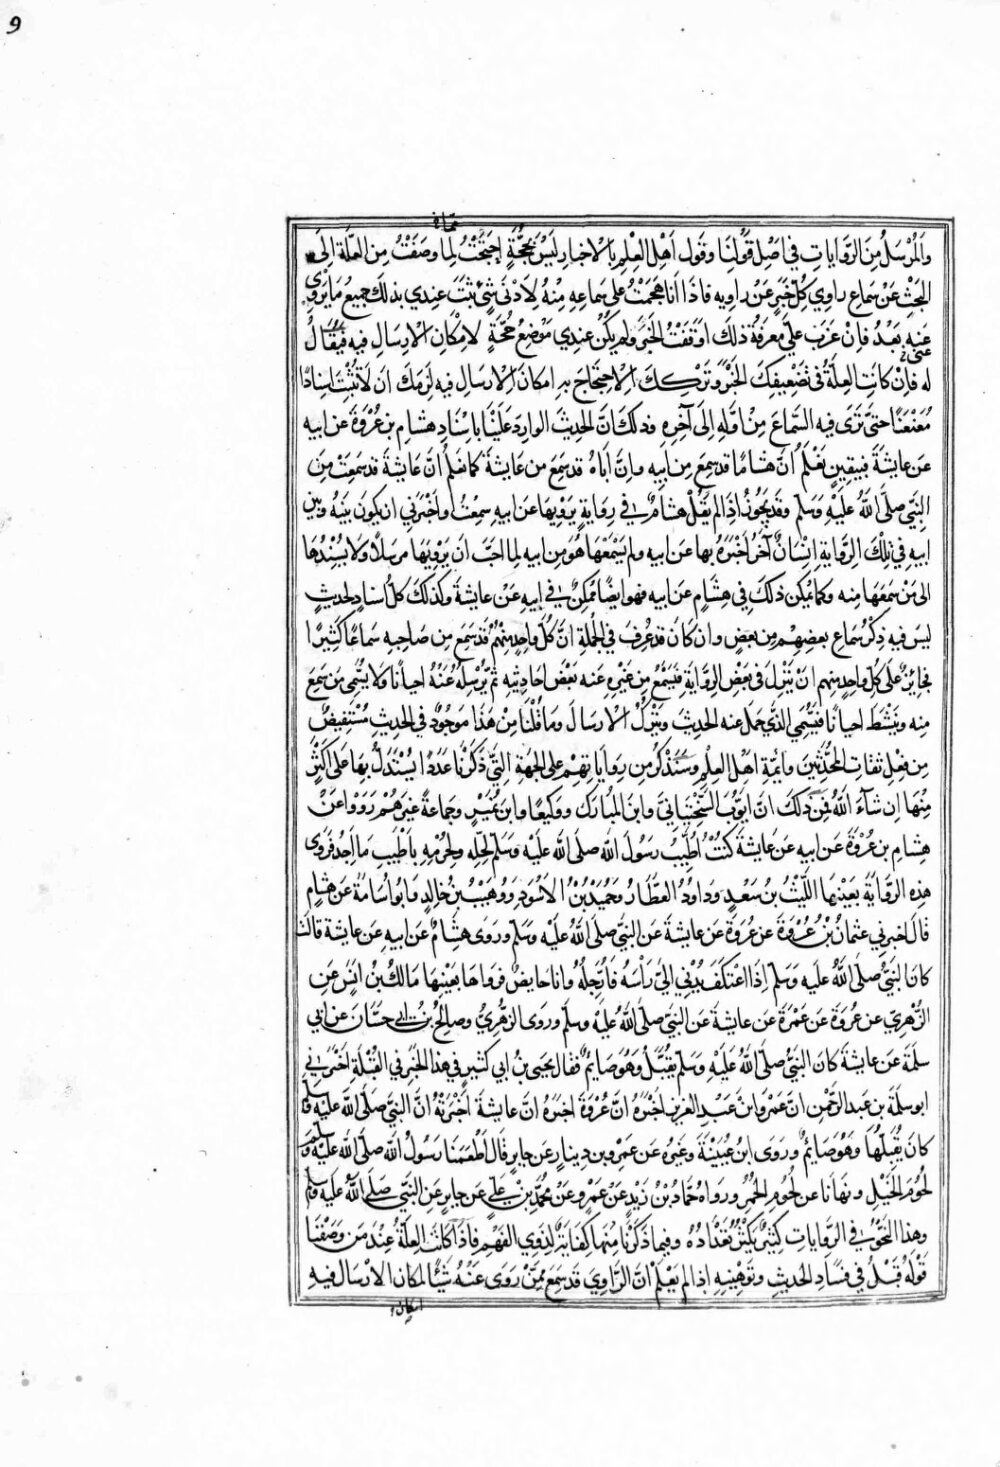 9
والمرسل من الروايات في اصل قولنا وقول اهل العلم بالاخبار ليس بحجة احتجت لما وصفت من العلة الى
البحث عن سماع راوي كل خبر عن راويه فاذا انا هجمت على سماعه منه لادنى شيء ثبت عندي بذلك جميع ما يروي
عنه بعد فان عزب علي معرفة ذلك اوقفت الخبر ولم يكن عندي موضع حجة لامكان الارسال فيه فيقال
له فان كانت العلة في تضعيفك الخبر وتركك الاحتجاج به امكان الارسال فيه لزمك ان لا تثبت اسنادا
معنعنا حتى ترى فيه السماع من اوله الى آخره وذلك ان الحديث الوارد علينا باسناد هشام بن عروة عن ابيه
عن عايشة فبيقين نعلم ان هشاما قد سمع من ابيه وان اباه قد سمع من عايشة كما نعلم ان عايشة قد سمعت من
النبي صلى الله عليه وسلم وقد يجوز اذا لم يقل هشام في رواية يرويها عن ابيه سمعت او اخبرني ان يكون بينه وبين
ابيه في تلك الرواية انسان آخر اخبره بها عن ابيه ولم يسمعها هو من ابيه لما احب ان يرويها مرسلا ولا يسندها
الى من سمعها منه وكما يمكن ذلك في هشام عن ابيه فهو ايضا ممكن في ابيه عن عايشة وكذلك كل اسناد لحديث
ليس فيه ذكر سماع بعضهم من بعض وان كان قد عرف في الجملة ان كل واحد منهم قد سمع من صاحبه سماعا كثيرا
فجايز على كل واحد منهم ان ينزل في بعض الرواية فيسمع من غيره عنه بعض احاديثه ثم يرسله عنه احيانا ولا يسمي من سمع
منه وينشط احيانا فيسمي الذي حمل عنه الحديث ويترك الارسال وما قلنا من هذا موجود في الحديث مستفيض
من فعل ثقات المحدثين وايمة اهل العلم وسنذكر من رواياتهم على الجهة التي ذكرنا عددا يستدل بها على اكثر
منها ان شاء الله فمن ذلك ان ايوب السختياني وابن المبارك ووكيعا وابن نمير وجماعة غيرهم رووا عن
هشام بن عروة عن ابيه عن عايشة كنت اطيب رسول الله صلى الله عليه وسلم لحله ولحرمه باطيب ما اجد فروى
هذه الرواية بعينها الليث بن سعد وداود العطار وحميد بن الاسود ووهيب بن خالد وابو اسامة عن هشام
قال اخبرني عثمان بن عروة عن عروة عن عايشة عن النبي صلى الله عليه وسلم وروى هشام عن ابيه عن عايشة قالت
كان النبي صلى الله عليه وسلم اذا اعتكف يدني الي راسه فارجله وانا حايض فرواها بعينها مالك بن انس عن
الزهري عن عروة عن عمرة عن عايشة عن النبي صلى الله عليه وسلم وروى الزهري وصالح بن ابي حسان عن ابي
سلمة عن عايشة كان النبي صلى الله عليه وسلم يقبل وهو صايم فقال يحيى بن ابي كثير في هذا الخبر في القبلة اخبرني
ابو سلمة بن عبد الرحمن ان عمر بن عبد العزيز اخبره ان عروة اخبره ان عايشة اخبرته ان النبي صلى الله عليه وسلم
كان يقبلها وهو صايم وروى ابن عيينة وغيره عن عمرو بن دينار عن جابر قال اطعمنا رسول الله صلى الله عليه وسلم
لحوم الخيل ونهانا عن لحوم الحمر ورواه حماد بن زيد عن عمرو عن محمد بن علي عن جابر عن النبي صلى الله عليه وسلم
وهذا النحو في الروايات كثير يكثر تعداده وفيما ذكرنا منها كفاية لذوي الفهم فاذا كانت العلة عند من وصفنا
قوله قبل في فساد الحديث وتوهينه اذا لم يعلم ان الراوي قد سمع ممن روى عنه شيئا لمكان الارسال فيه
امكان